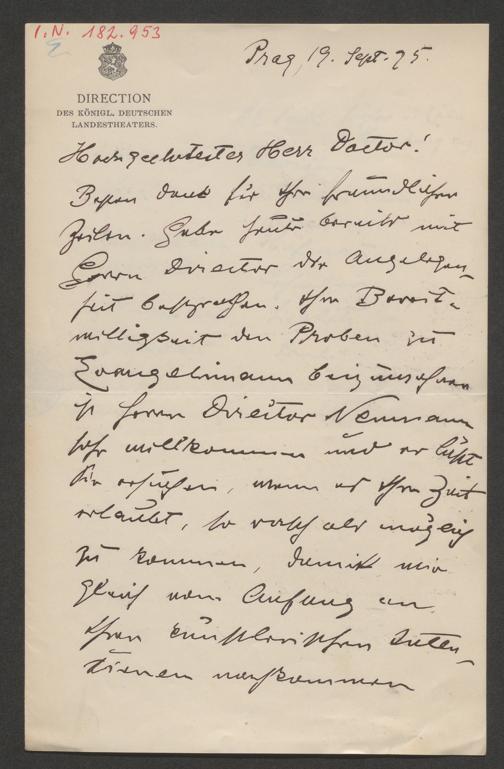 I.N. 182.953
Prag, 19. Sept. 95.
DIRECTION
DES KÖNIGL. DEUTSCHEN
LANDESTHEATERS.
Hochgeehrtester Herr Doctor!
Besten Dank für Ihre freundlichen
Zeilen. Habe heute bereits mit
Herrn Director die Angelegen-
heit besprochen. Ihre Bereit-
willigkeit den Proben zu
Evangelimann beizuwohnen
ist Herrn Director Neumann
sehr willkommen und er läßt
Sie ersuchen, wenn es Ihre Zeit
erlaubt, so rasch als möglich
zu kommen, damit wir
gleich vom Anfang an
Ihren künstlerischen Inten-
tionen nachkommen